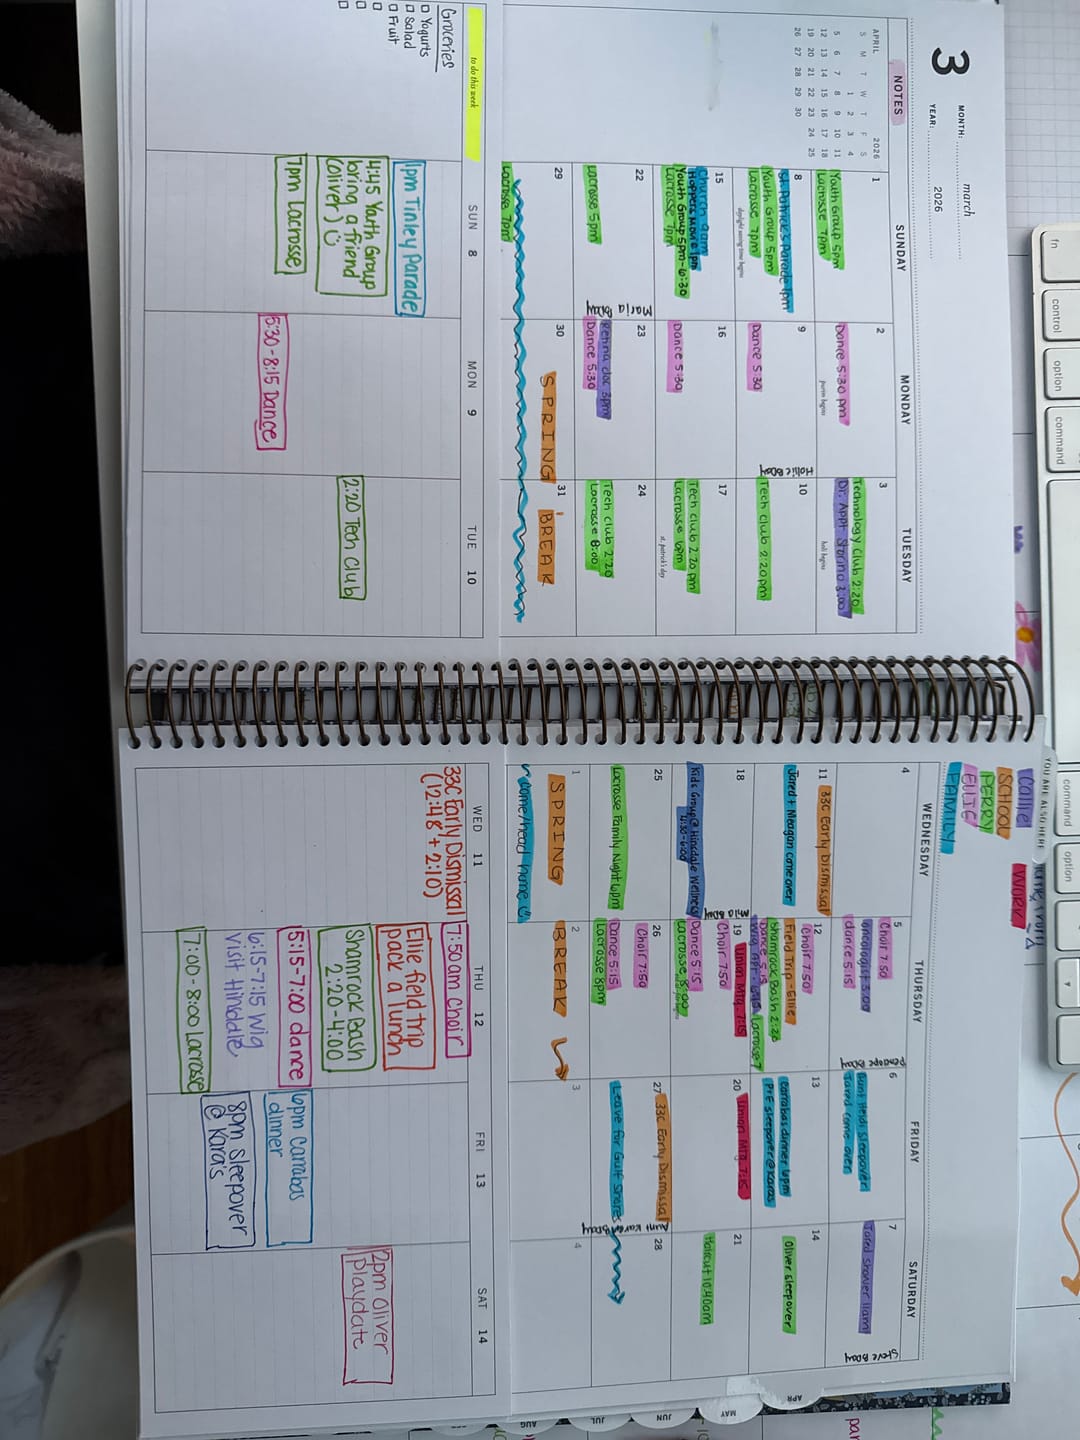 3
MONTH: march
YEAR: 2026
NOTES
APRIL 2026
S M T W T F S
1 2 3 4
5 6 7 8 9 10 11
12 13 14 15 16 17 18
19 20 21 22 23 24 25
26 27 28 29 30
SUNDAY
MONDAY
TUESDAY
1
Youth Group 5pm
Lacrosse 7pm
2
Dance 5:30 pm
purim begins
3
Technology Club 2:20
Dr. Appt Storino 3:00
holi begins
8
St. Patrick's Parade 1pm
Youth Group 5pm
Lacrosse 7pm
daylight saving time begins
9
Dance 5:30
Hollie Bday
10
Tech Club 2:20pm
15
Church 9am
Hoppers Movie 1pm
Youth Group 5pm-6:30
Lacrosse 7pm
16
Dance 5:30
17
Tech Club 2:20 pm
Lacrosse 6pm
st. patrick's day
22
Lacrosse 5pm
Maria Bday
23
Retina doc 3pm
Dance 5:30
24
Tech Club 2:20
Lacrosse 8:00
29
Lacrosse 7pm
30
SPRING
31
BREAK
to do this week
Groceries
Yogurts
Salad
Fruit
SUN 8
1pm Tinley Parade
4:45 Youth Group
bring a friend
(Oliver)
7pm Lacrosse
MON 9
5:30-8:15 Dance
TUE 10
2:20 Tech Club
YOU ARE ALSO HERE
Callie
SCHOOL
PERRY
ELLIE
FAMILY
WORK
WEDNESDAY
THURSDAY
FRIDAY
SATURDAY
4
5
Choir 7:50
oncologist 3:00
dance 5:15
Penelope Bday
6
Aunt Heidi Sleepover
Jared come over
7
Jared Shower 11am
Steve Bday
11
33C Early Dismissal
Jared + Meagan come over
12
Choir 7:50
Field Trip - Ellie
Shamrock Bash 2:20
Dance 5:15
Wig Appt. 6:15 Lacrosse 7
13
Carrabas dinner 6pm
P+E Sleepover @ Karas
14
Oliver Sleepover
18
Kids Group @ Hinsdale Wellness
4:30-6:00
Mila Bday
19
Union Mtg. 7:15
Choir 7:50
Dance 5:15
Lacrosse 8:00
20
Union Mtg. 7:15
21
Haircut 10:40am
25
Lacrosse Family Night 6pm
26
Choir 7:50
Dance 5:15
Lacrosse 8pm
27
33C Early Dismissal
Leave for Gulf Shores
Aunt Karen Bday
28
1
SPRING
come/head home
2
BREAK
3
4
WED 11
33C Early Dismissal
(12:48 + 2:10)
THU 12
7:50 am Choir
Ellie field trip
pack a lunch
Shamrock Bash
2:20-4:00
5:15-7:00 dance
6:15-7:15 Wig
visit Hinsdale
7:00-8:00 Lacrosse
FRI 13
6pm Carrabas
dinner
8pm Sleepover
@ Kara's
SAT 14
2pm Oliver
Playdate
APR
MAY
JUN
JUL
AUG
fn
control
option
command
command
option